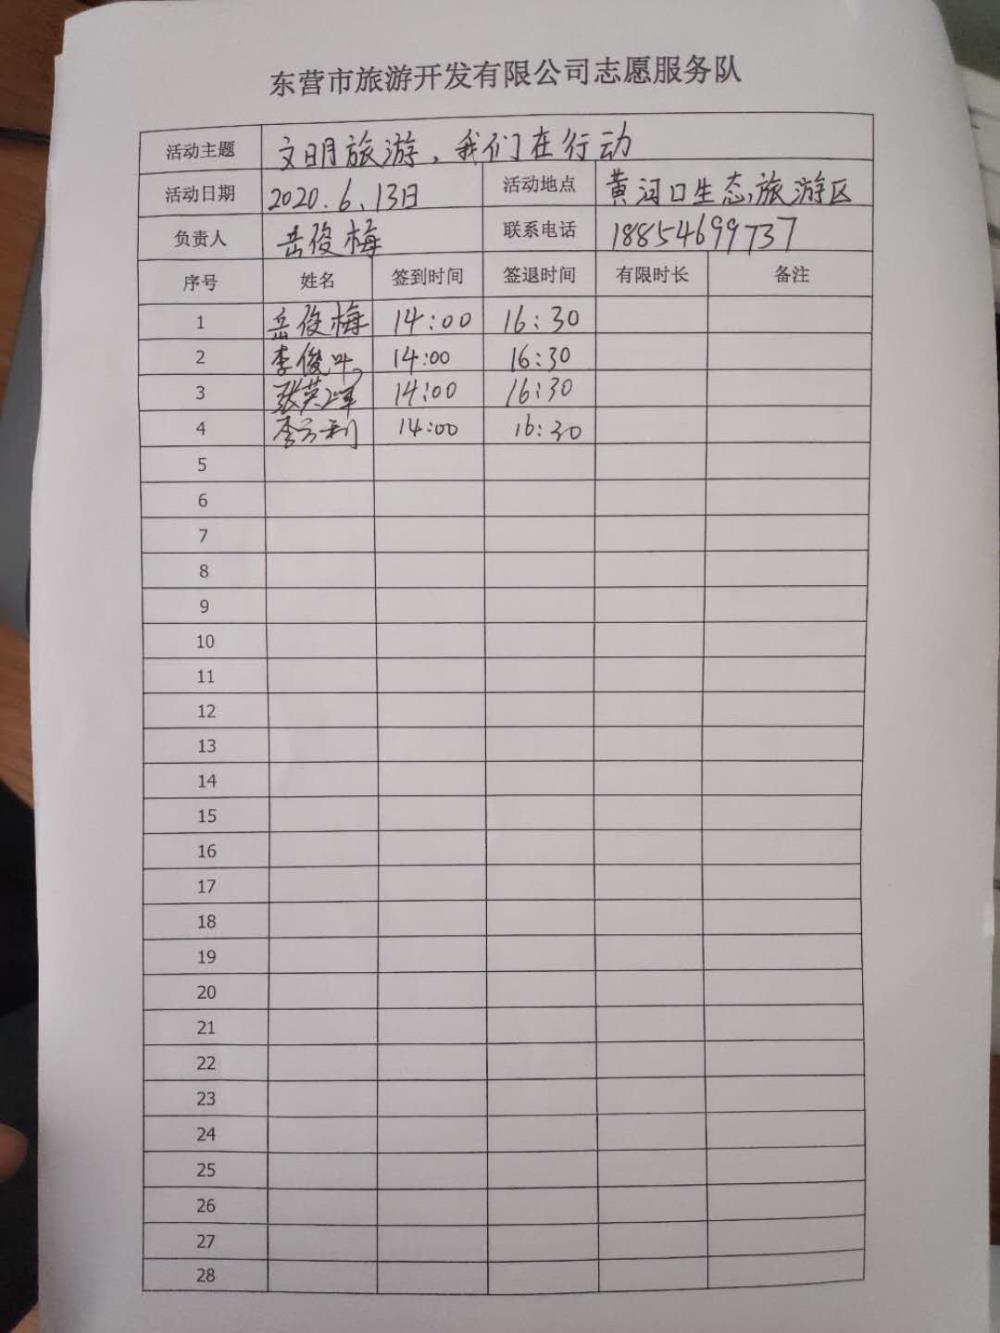 东营市旅游开发有限公司志愿服务队
活动主题 文明旅游，我们在行动
活动日期 2020.6.13日 活动地点 黄河口生态旅游区
负责人 岳俊梅 联系电话 18854699737
序号 姓名 签到时间 签退时间 有限时长 备注
1 岳俊梅 14:00 16:30
2 李俊叶 14:00 16:30
3 张英 14:00 16:30
4 李 利 14:00 16:30
5
6
7
8
9
10
11
12
13
14
15
16
17
18
19
20
21
22
23
24
25
26
27
28